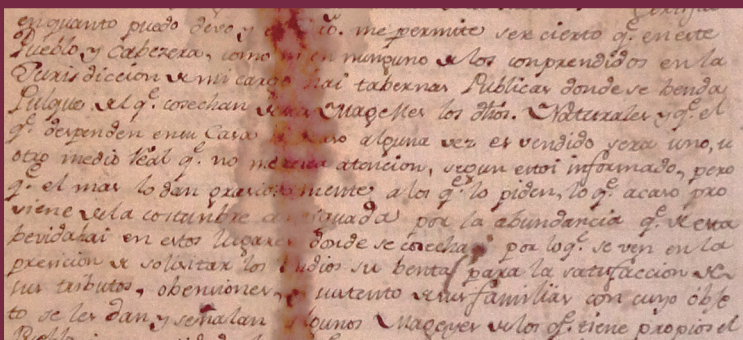 en quanto puedo devo y me permite ser cierto q.e en este
Pueblo y Cabezera, como ni en ninguno de los conprendidos en la
Jurisdiccion de mi cargo hai tabernas Publicas donde se benda
Pulque del q.e cosechan de sus Magelles los dhos. Naturales y q.e el
q.e despenden en su Casa alguna vez es vendido sera uno, u
otro medio Real q.e no meresca atencion, segun estoi informado, pero
q.e el mas lo dan graciosamente a los q.e lo piden, lo q.e acaso pro
viene de la costunbre antiquada por la abundancia q.e de esta
bevida hai en estos lugares donde se cosecha por lo q.e se ven en la
presicion de solisitar los Indios su benta para la satisfaccion de
sus tributos, obenciones, y sustento de sus familias con cuyo obje
to se les dan y señalan algunos Mageyes de los q.e tiene propios el